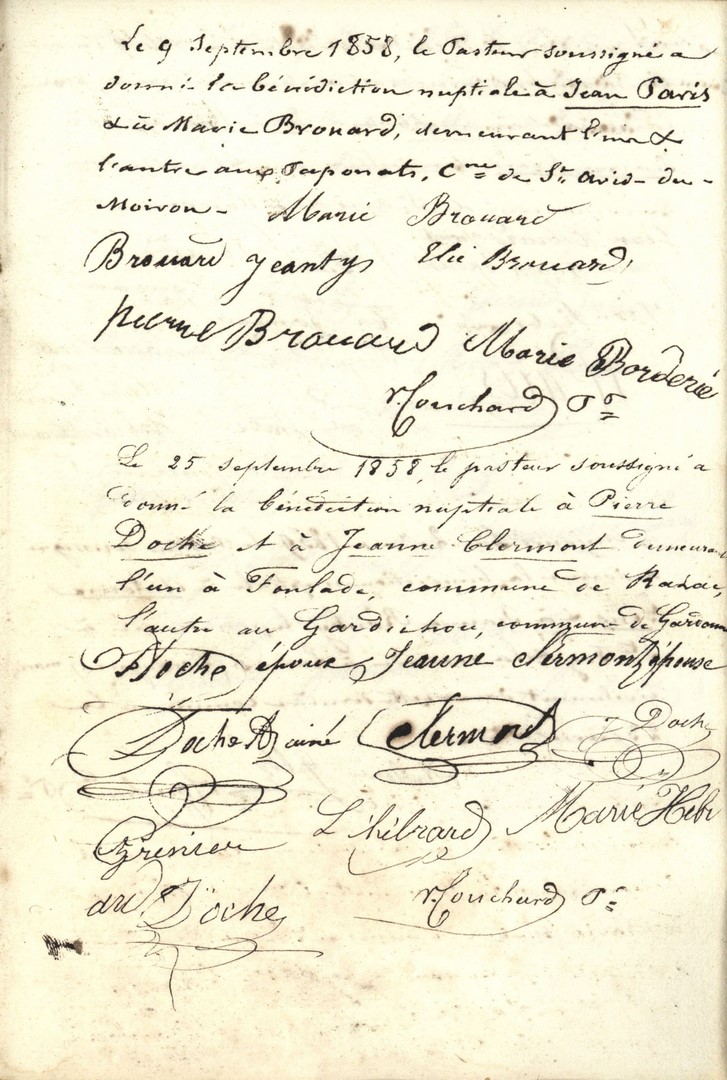 Le 9 Septembre 1858, le Pasteur soussigné a
donné la bénédiction nuptiale à Jean Paris
& à Marie Brouard, demeurant l'un &
l'autre aux Taponats, Cne de St. Avid-du-
Moiron - Marie Brouard
Brouard Jeanty Elie Brouard
pierre Brouard Marie Borderie
Couchard Pr
Le 25 septembre 1858, le pasteur soussigné a
donné la bénédiction nuptiale à Pierre
Doche et à Jeanne Clermont demeurant
l'un à Foulade, commune de Razac,
l'autre au Gardichou, commune de
Doche époux Jeanne Clermont épouse
Doche ainé Clermont J Doche
Grenier L hébrard Marie Hebr
Doche Couchard Pr